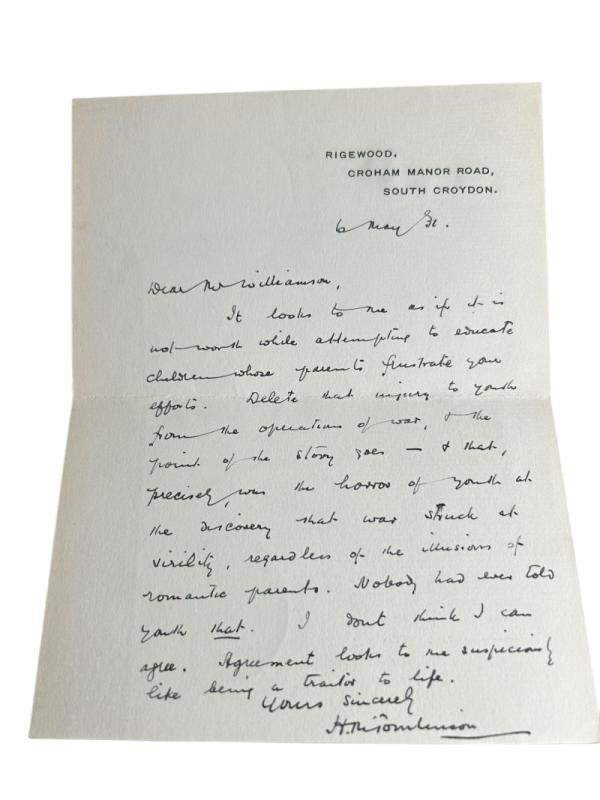 RIGEWOOD,
CROHAM MANOR ROAD,
SOUTH CROYDON.
6 May 31.
Dear Mr Williamson,
It looks to me as if it is
not worth while attempting to educate
children whose parents frustrate your
efforts. Delete that injury to youth
from the operations of war, & the
point of the story goes — & that,
precisely, was the horror of youth at
the discovery that war struck at
virility, regardless of the illusions of
romantic parents. Nobody had ever told
youth that. I dont think I can
agree. Agreement looks to me suspiciously
like being a traitor to life.
Yours sincerely
H.M. Tomlinson